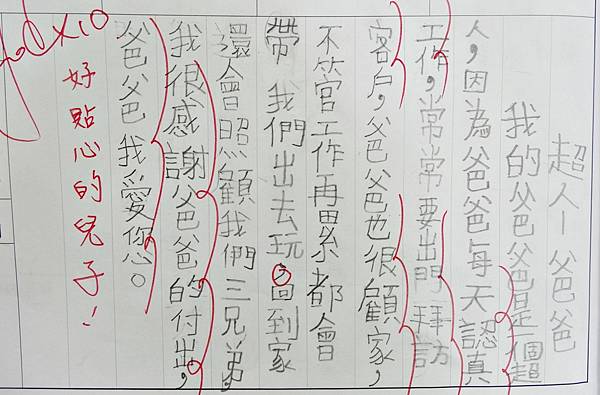 超人—爸爸
我的爸爸是一個超
人，因為爸爸每天認真
工作，常常要出門拜訪
客戶，爸爸也很顧家，
不管工作再累都會
帶我們出去玩，回到家
還會照顧我們三兄弟，
我很感謝爸爸的付出，
爸爸我愛你。
好貼心的兒子！
x10